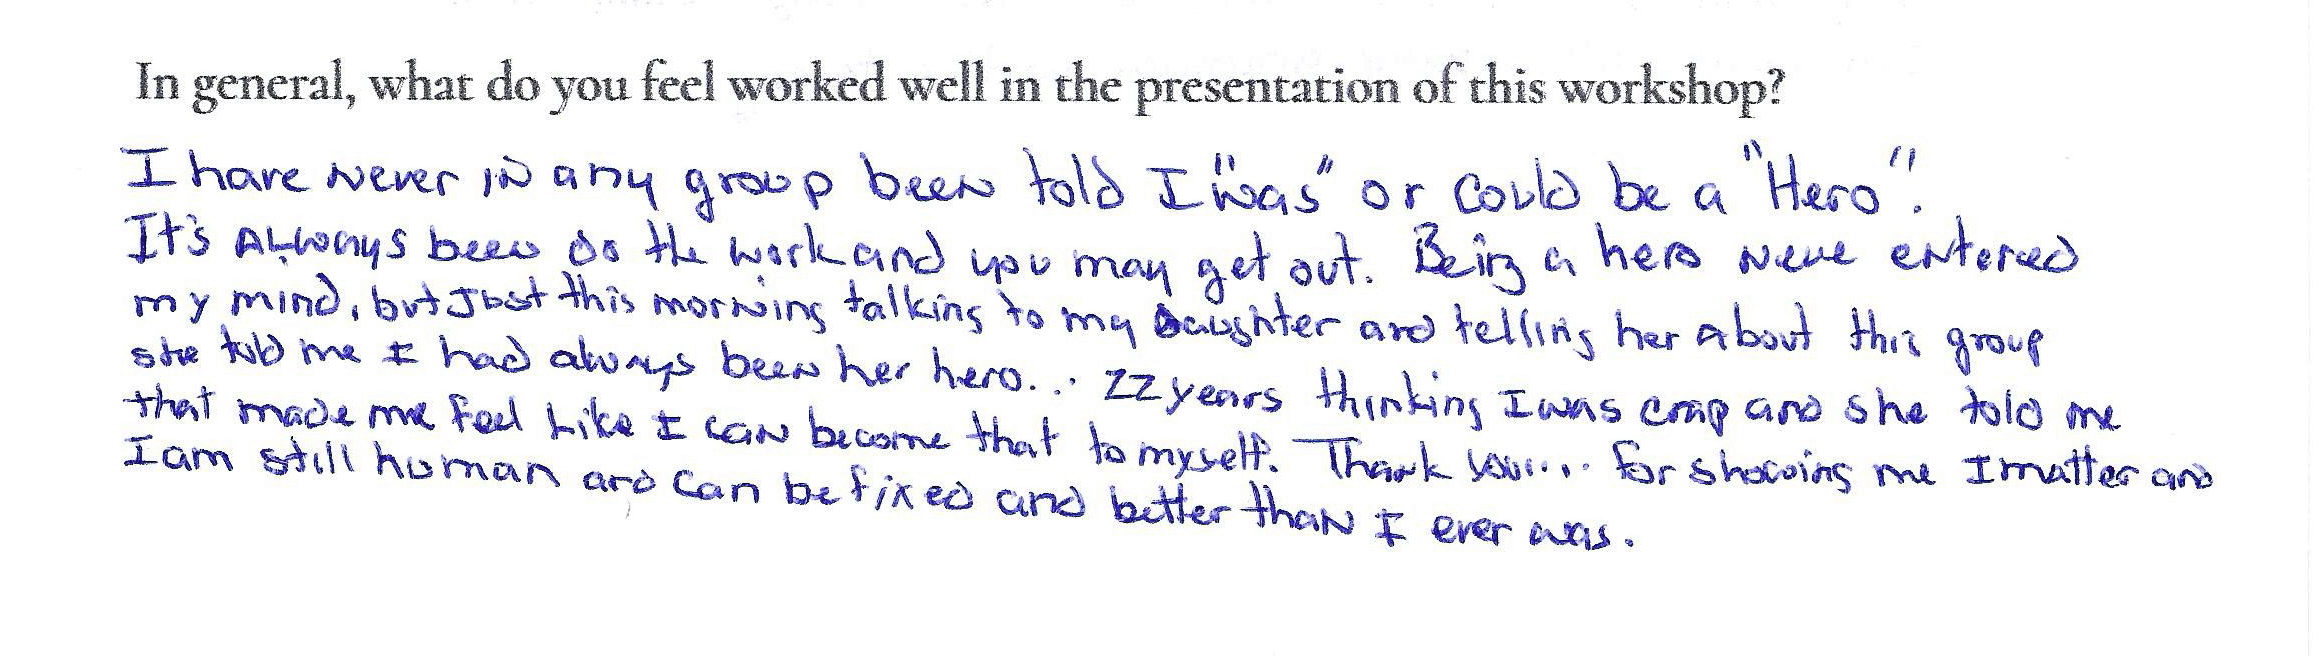 In general, what do you feel worked well in the presentation of this workshop?
I have never in any group been told I "was" or could be a "Hero".
It's ALways been do the work and you may get out. Being a hero neve entered
my mind, but Just this morning talking to my Daughter and telling her about this group
she told me I had always been her hero... 22 years thinking I was crap and she told me
that made me feel Like I can become that to myself. Thank you.... for showing me I matter and
I am still human and can be fixed and better than I ever was.